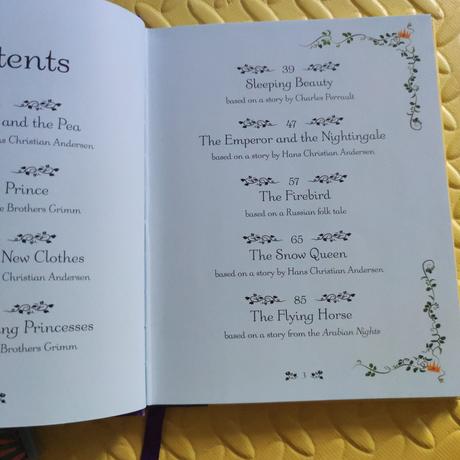 tents
and the Pea
ns Christian Andersen
Prince
e Brothers Grimm
New Clothes
Christian Andersen
ng Princesses
Brothers Grimm
39
Sleeping Beauty
based on a story by Charles Perrault
47
The Emperor and the Nightingale
based on a story by Hans Christian Andersen
57
The Firebird
based on a Russian folk tale
65
The Snow Queen
based on a story by Hans Christian Andersen
85
The Flying Horse
based on a story from the Arabian Nights
3